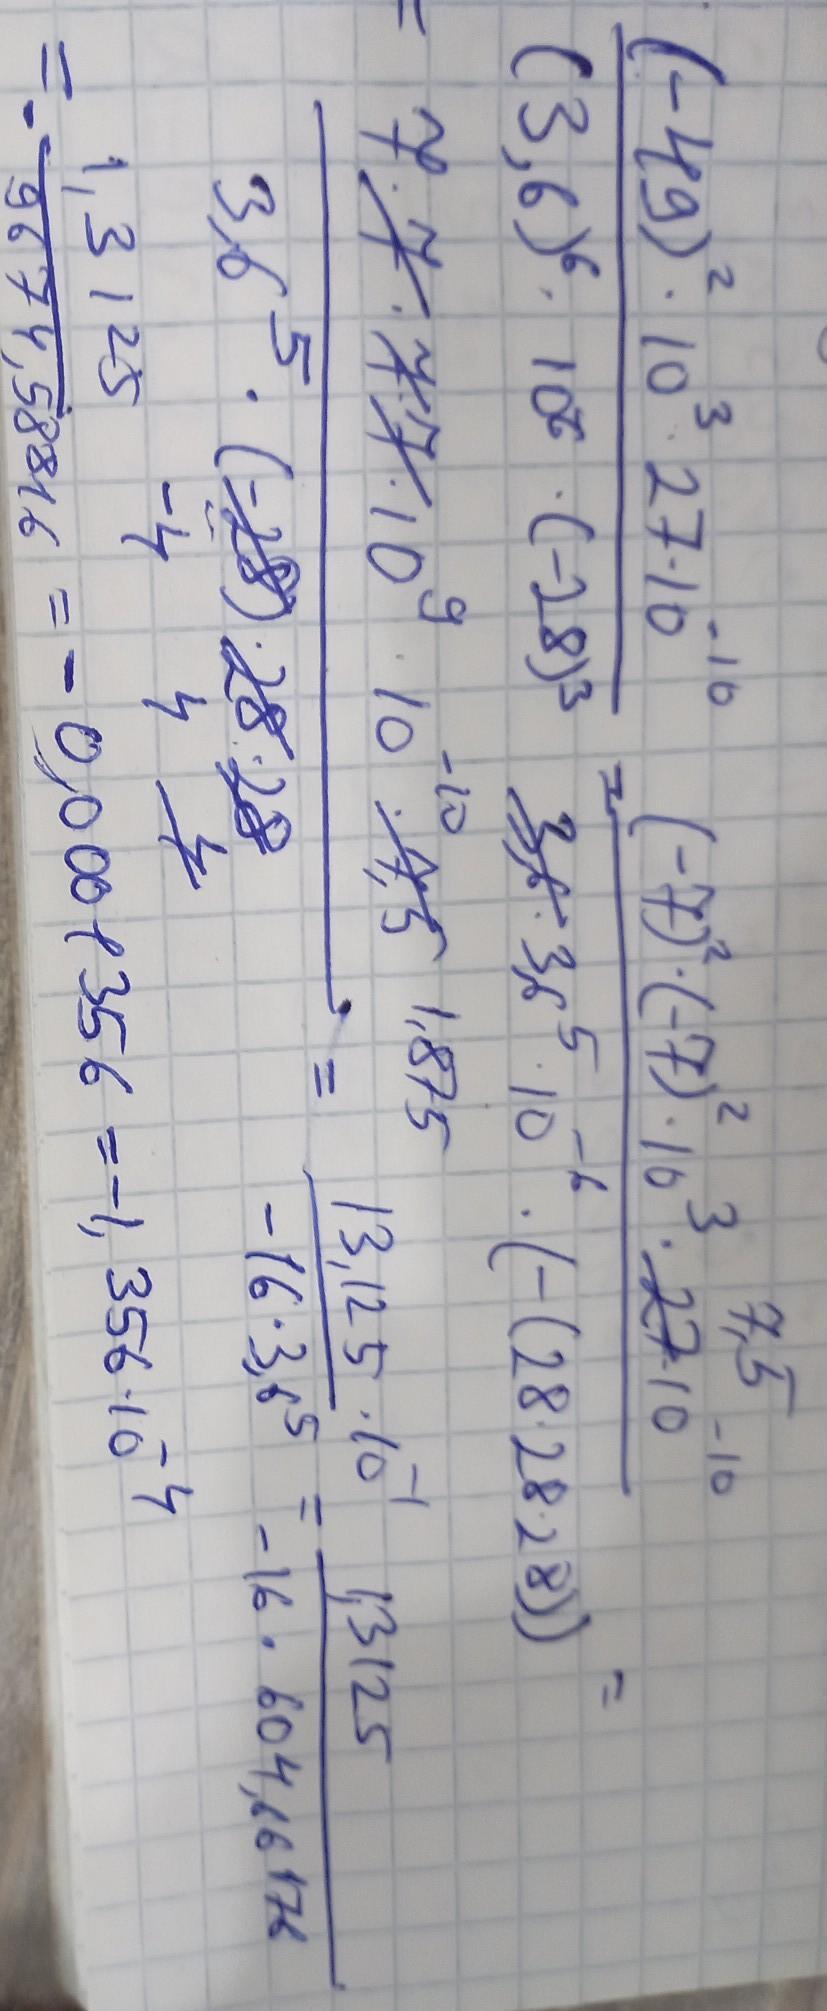 (-49)² · 10³ · 27 · 10⁻¹⁰ / (3,6)⁶ · 10⁻⁶ · (-28)³ = (-7)² · (-7)² · 10³ · 27 · 10⁻¹⁰ / 3,6 · 3,6⁵ · 10⁻⁶ · (-(28 · 28 · 28)) =
7,5
= 7 · 7 · 7 · 7 · 10⁹ · 10⁻¹⁰ · 7,5 1,875 / 3,6⁵ · (-28) · 28 · 28 = 13,125 · 10⁻¹ / -16 · 3,6⁵ = 1,3125 / -16 · 604,66176
-4 4 4
= - 1,3125 / 9674,58816 = -0,0001356 = -1,356 · 10⁻⁴